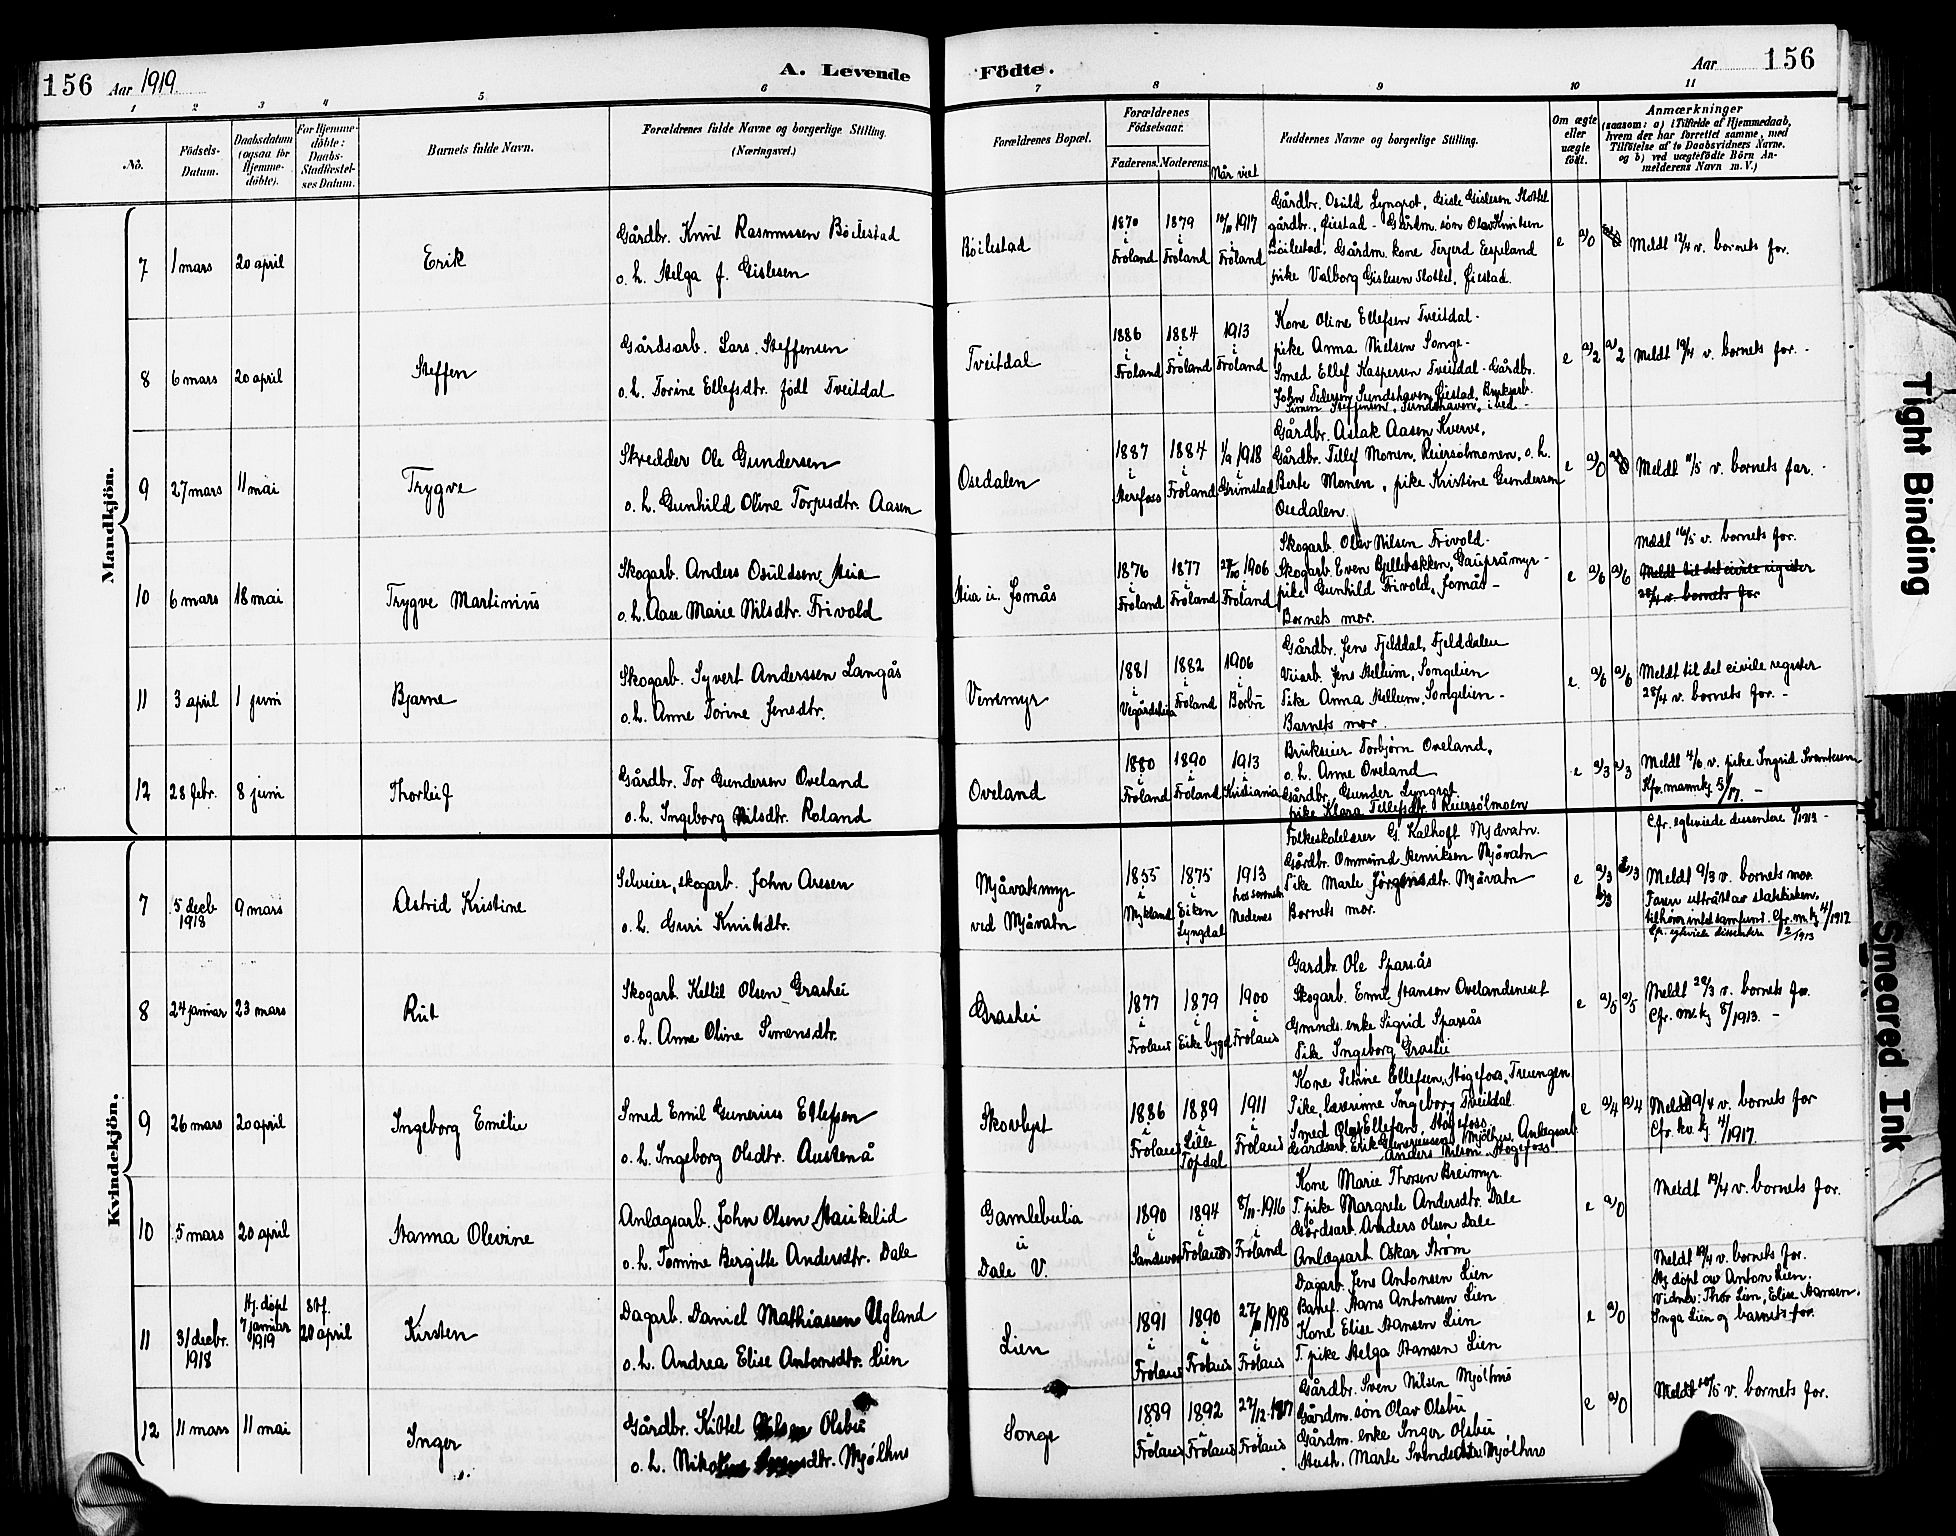 156 Aar 1919. A. Levende Födte. Aar 156
1 2 3 4 5 6 7 8 9 10 11
No. Födsels-Datum. Daabsdatum (ogsaa for Hjemme-döbte). For Hjemme-döbte: Daabs-Stadfæstel-ses Datum. Barnets fulde Navn. Forældrenes fulde Navne og borgerlige Stilling. (Næringsvei.) Forældrenes Bopæl. Forældrenes Födselsaar. Faderens. Moderens. Når viet Faddernes Navne og borgerlige Stilling. Om ægte eller uægte födt. Anmærkninger
(saasom: a) i Tilfælde af Hjemmedaab, hvem der har forrettet samme, med Tilföielse af to Daabsvidners Navne. og b) ved uægtefödte Börn An-melderens Navn m. V.)
Mandkjön.
7 1 mars 20 april Erik
Gårdbr. Knut Rasmussen Böilestad
o. h. Helga f. Gislesen
Böilestad
1870 i Froland 1879 i Froland 1917 i Froland
Gårdbr. Osuld Lyngrot, Gisle Gislesen Slottet
gårdbr., Gjestad - Gårdm. søn Olav Knutsen
Böilestad, Gårdm. kone Terjerd Espeland
pike Valborg Gislesen Slottet, Gjestad.
e a/0 Meldt 12/4 v. bornets far.
8 6 mars 20 april Steffen
Gårdsarb. Lars Steffensen
o. h. Torine Ellefsdtr. født Tveitdal
Tveitdal
1886 i Froland 1884 i Froland 1913 i Froland
Kone Oline Ellefsen Tveitdal -
pike Anna Nielsen Songe -
Smed Ellef Kaspersen Tveitdal - Gårdbr.
John Pedersen Sundshaven, Gjestad, Bruksarb.
Simen Steffensen, Sundshaven, ibed -
e a/2 a/2 Meldt 19/4 v. bornets far. -
9 27 mars 11 mai Trygve
Skredder Ole Gundersen
o. h. Gunhild Oline Torjusdtr. Aasen
Osedalen
1887 i Herefoss 1884 i Froland 1/9 1918 i Grimstad
Gårdbr. Aslak Aasen Kverve,
Gårdbr. Tellef Monen, Reiersølmonen, o. h.
Berte Monen, pike Kristine Gundersen
Osedalen.
e a/0 Meldt 11/5 v. bornets far. -
10 6 mars 18 mai Trygve Martinius
Skogarb. Anders Osuldsen Heia
o. h. Aase Marie Nilsdtr. Frivold
Heia u. Jomås
1876 i Froland 1877 i Froland 27/10 1906 i Froland
Skogarb. Olav Nilsen Frivold -
Skogarb. Even Bellebakken, Gaupråmyr -
pike Gunhild Frivold, Jomås -
Bornets mor.
e a/6 a/6 Meldt 16/5 v. bornets far.
Meldt til det civile register
28/4 v. bornets far
11 3 april 1 juni Bjarne
Skogarb. Syvert Anderssen Langås
o. h. Anne Torine Jensdtr.
Vensmyr
1881 i Vegårdsheia 1882 i Froland 1906 i Borbu
Gårdbr. Jens Fjelddal, Fjelddalen
Veiarb. Jens Hellum, Songelien
Pike Anna Hellum, Songelien -
Barnets mor.
e. a/6 a/6 Meldt til det civile register
28/4 v. bornets far. -
12 28 febr. 8 juni Thorleif
Gårdbr. Tor Gundersen Oveland
o. h. Ingeborg Nilsdtr. Roland
Oveland
1880 i Froland 1890 i Froland 1913 i Kristiania
Brukseier Torbjørn Oveland,
o. h. Anne Oveland
Gårdbr. Gunder Lyngrot.
pike Klara Tellefsdtr. Reiersølmoen
e a/3 a/3 Meldt 4/6 v. pike Ingrid Svantesen
Kfr. mannkj. 5/17. -
Kvindekjön.
7 5 decb 1918 9 mars Astrid Kristine
Selveier, skogarb. John Aresen
o. h. Guri Knutsdtr.
Mjåvatsmyr
ved Mjåvatn
1855 i Mykland 1875 i Eiken Lyngdal 1913 hos sorenskr. Nedenes
Folkeskolelærer G. Kalhoft Mjåvatn.
Gårdbr. Ommund Henriksen Mjåvatn
Pike Marte Jørgensdtr. Mjåvatn
Bornets mor.
e a/3 b/3 Cfr. egteviede dissentere 1/1913 -
Meldt 9/3 v. bornets mor.
Faren uttrått av statskirken,
tilhører intet samfund. Cfr. m. kj 4/1917
Cfr. egteviede dissentere 2/1913
8 24 januar 23 mars Rut
Skogarb. Kettil Olsen Grashei
o. h. Anne Oline Simensdtr.
Grashei
1877 i Froland 1879 i Eikebygd 1900 i Froland
Gardbr. Ole Sparsås
Skogarb. Emil Hansen Ovelandsneset
Gmmds. enke Sigrid Sparsås
Pike Ingeborg Grashei
e a/5 a/5 Meldt 20/3 v. bornets far.
Cfr. m. kj 8/1913. -
9 26 mars 20 april Ingeborg Emelie
Smed Emil Gunerius Ellefsen
o. h. Ingeborg Olsdtr. Austenå
Skovlyst
1886 i Froland 1889 i Lille Topdal 1911 i Froland
Kone Petrine Ellefsen, Høgefoss, Treungen
Pike lærerinne Ingeborg Tveitdal.
Smed Olaf Ellefsen, Høgefoss
Gårdsarb. Erik Mjølhus, Anlægsarb
Anders Nilsen Høgefoss.
e a/4 a/4 Meldt 19/4 v. bornets far
Cfr. kv. kj. 4/1917
10 5 mars 20 april Hanna Olevine
Anlægsarb. John Olsen Haukelid
o. h. Tomine Bergitte Andersdtr. Dale
Gamlebulia
u
Dale V.
1890 i Sandsver 1894 i Froland 8/11-1916 i Froland
Kone Marie Thorsen Breimyr.
T. pike Margrete Andersdtr. Dale
Gårdsarb. Anders Olsen Dale
Anlægsarb Oskar Strøm
e a/0 Meldt 19/4 v. bornets far.
11 31 decbr. 1918 Hj. døpt 7 januar 1919 Stf. 20 april Kirsten
Dagarb. Daniel Mathiassen Ugland
o. h. Andrea Elise Antonsdtr. Lien
Lien
1891 i Froland 1890 i Froland 27/10 1918 i Froland
Dagarb. Jens Antonsen Lien
Banef. Hans Antonsen Lien
Kone Elise Hansen Lien
T. pike Helga Hansen Lien
e a/0 Meldt 19/4 v. bornets far.
Hj døpt av Anton Lien.
Vidner: Thor Lien, Elise Hansen.
Inga Lien og barnets far.
12 11 mars 11 mai Inger
Gårdbr. Kittel Olsbu
o. h. Mjølhus
Songe
1889 i Froland 1892 i Froland 27/12-1917 i Froland
Gårdbr. Sven Nilsen Mjølhus
Gårdm. søn Olav Olsbu
Gårdm. enke Inger Olsbu
Hush. Marte Svendsdtr. Mjølhus
e a/0 Meldt 10/5 v. bornets far.
Tight Binding
Smeared Ink